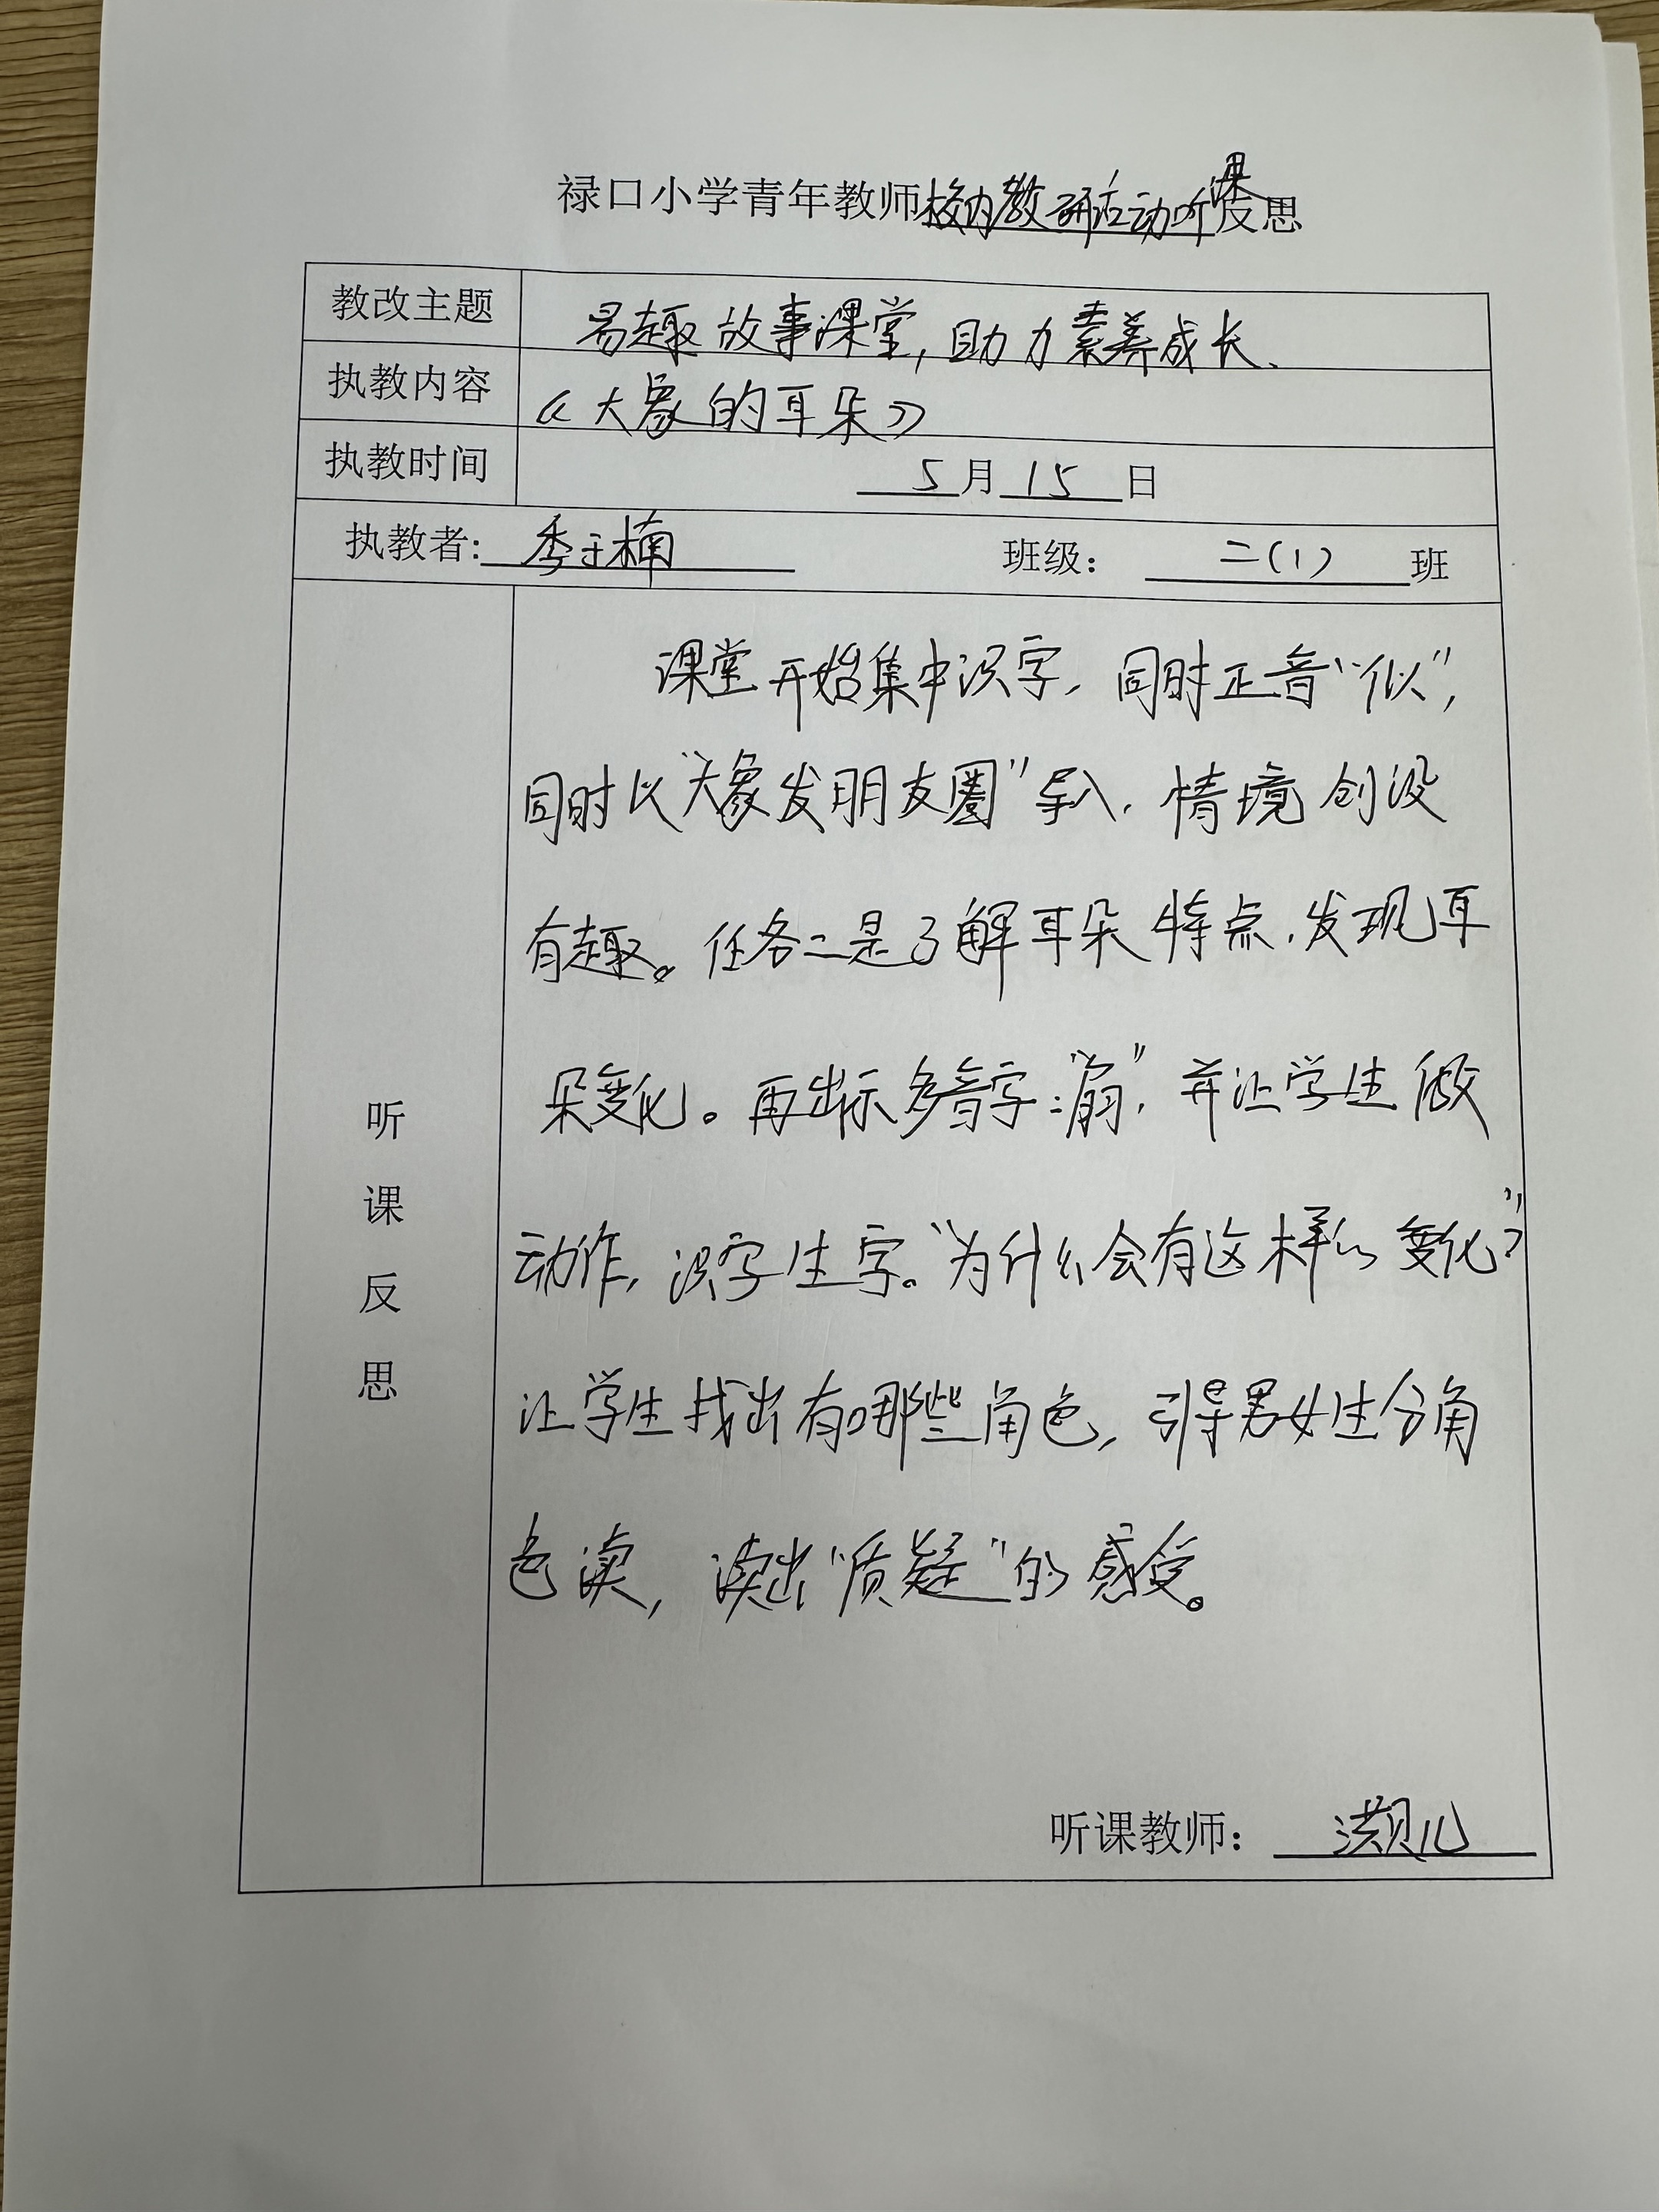 禄口小学青年教师校内教研活动听课反思
教改主题 易趣故事课堂,助力素养成长、
执教内容 《大象的耳朵》
执教时间 5月15日
执教者: 季于楠 班级: 二(1)班
课堂开始集中识字,同时正音“似”,
同时以“大象发朋友圈”导入,情境创设
有趣。任务二是了解耳朵特点,发现耳
朵变化。再出示多音字:“扇”,并让学生做
动作,识字生字。“为什么会有这样的变化?”
让学生找出有哪些角色,引导男女生分角
色读,读出“质疑”的感受。
听课反思
听课教师: 洪贝儿